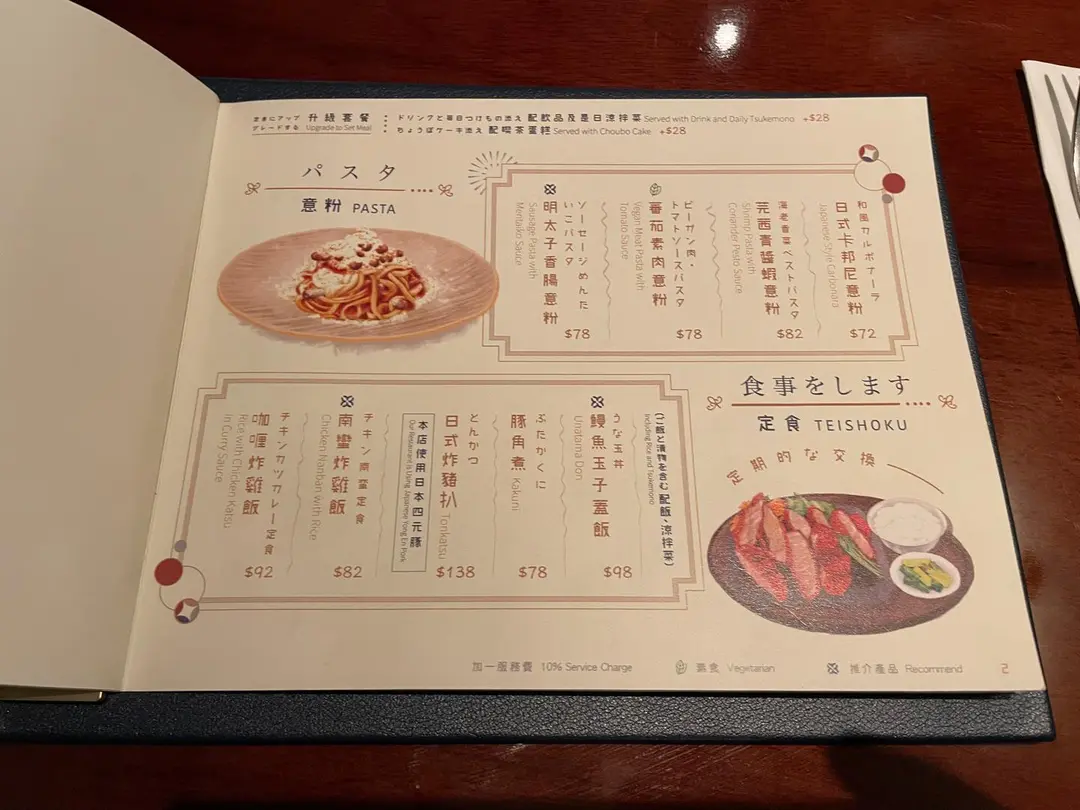 定食にアップ
グレードする
升級套餐
Upgrade to Set Meal
ドリンクと毎日つけもの添え 配飲品及是日涼拌菜 Served with Drink and Daily Tsukemono +$28
ちょうぼケーキ添え 配喫茶蛋糕 Served with Choubo Cake +$28
パスタ
意粉 PASTA
和風カルボナーラ
日式卡邦尼意粉
Japanese Style Carbonara
$72
海老香菜ペストパスタ
芫茜青醬蝦意粉
Shrimp Pasta with
Coriander Pesto Sauce
$82
ビーガン肉・
トマトソースパスタ
蕃茄素肉意粉
Vegan Meat Pasta with
Tomato Sauce
$78
ソーセージめんた
いこパスタ
明太子香腸意粉
Sausage Pasta with
Mentaiko Sauce
$78
食事をします
定食 TEISHOKU
定期的な交換
(ご飯と漬物を含む 配飯、涼拌菜)
Including Rice and Tsukemono
うな玉丼
鰻魚玉子蓋飯
Unatama Don
$98
ぶたかくに
豚角煮 Kakuni
$78
とんかつ
日式炸豬扒 Tonkatsu
$138
本店使用日本四元豚
Our Restaurant is Using Japanese Yong En Pork
チキン南蛮定食
南蠻炸雞飯
Chicken Nanban with Rice
$82
チキンカツカレー定食
咖喱炸雞飯
Rice with Chicken Katsu
in Curry Sauce
$92
加一服務費 10% Service Charge
素食 Vegetarian
推介產品 Recommend
2